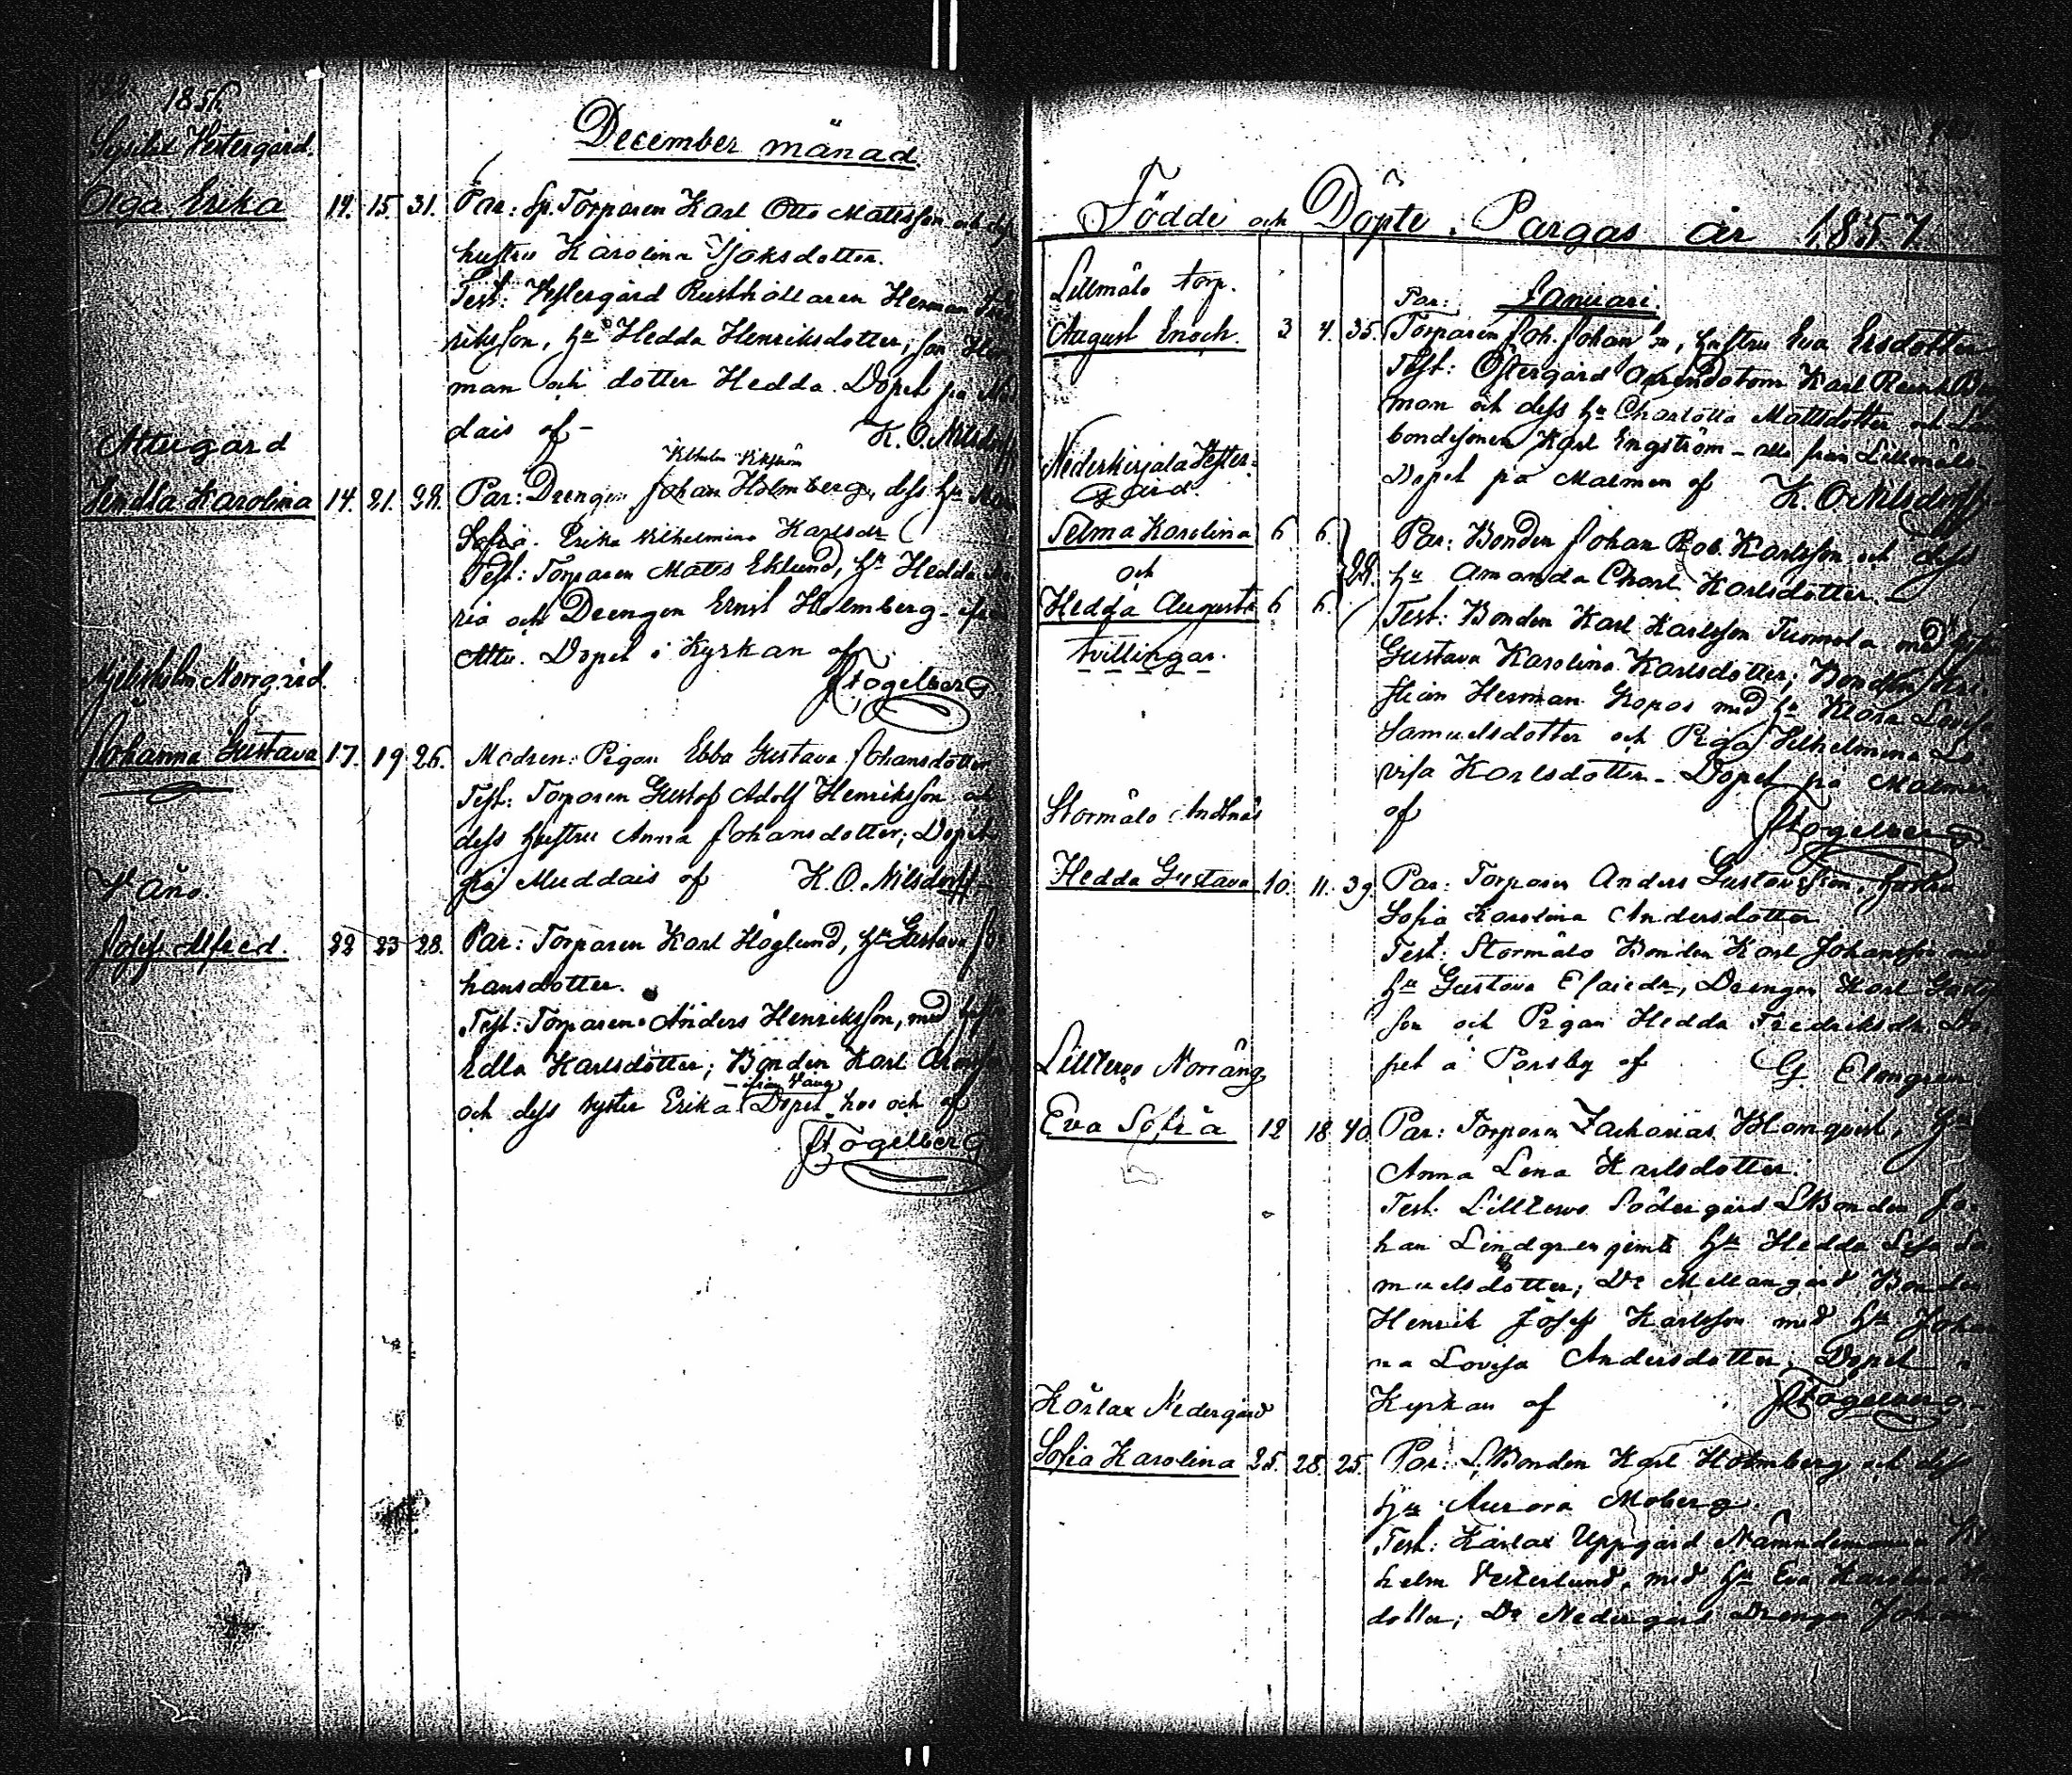 1856
Vestergård.
December månad
Olga Erika 14. 15. 31. Par: Sp. Torparen Karl Otto Mattsson och dess
hustru Karolina Isaksdotter.
Test: Vestergård Rusthållaren Herman
riksson, hu Hedda Henriksdotter, son Her-
man och dotter Hedda. Döpet på
dais af – K. O. Nilsdorff
Attugård
Vilhelm Vikström
Hendla Karolina 14. 21. 28. Par: Drengen Johan Holmberg, dess hu
Sofia. Erika Vilhelmina Karlsdr
Test: Torparen Matts Eklund, hu Hedda Ma-
ria och Drengen Ernst Holmberg – ifrån
Attu. Döpet i Kyrkan af
FTogelberg
Norrgård.
Johanna Gustava 17. 19 26. Modren: Pigan Ebba Gustava Johansdotter
Test: Torparen Gustaf Adolf Henriksson och
dess hustru Anna Johansdotter; Döpet
på Muddais af K. O. Nilsdorff
Våno.
Josef Alfred. 22 23 28. Par: Torparen Karl Höglund, hu Gustava Jo-
hansdotter.
Test: Torparen Anders Henriksson, med hustru
Edla Karlsdotter; Bonden Karl
– ifrån Våno
och dess syster Erika. Döpet hos och af
FTogelberg
Födde och Döpte i Pargas år 1857
Lillmälo torp.
Par: Januari.
August Enoch. 3 4. 35. Torparen Joh. Johansson, hustru Eva Ersdotter
Test: Östergård Karl
man och dess hu Charlotta Mattsdotter och
bondesonen Karl Engström – alla från Lillmälo.
Döpet på Malmen af K. O. Nilsdorff
Nederkirjala Vester-
gård.
Selma Karolina 6 6. Par: Bonden Johan Rob. Karlsson och dess
och 28. hu Amanda Charl. Karlsdotter.
Hedda Augusta 6 6. Test: Bonden Karl Karlsson Tuorsla med hustru
tvillingar. Gustava Karolina Karlsdotter; Bonden Kri-
stian Herman Kopos med hu Klara Lovisa
Samuelsdotter och Pigan Vilhelmina Lo-
visa Karlsdotter – Döpet på Malmen
Stormälo Andnäs af FTogelberg
Hedda Gustava 10. 11. 39 Par: Torparen Anders Gustavsson, hustru
Sofia Karolina Andersdotter
Test: Stormälo Bonden Karl Johansson med
hu Gustava Esaiedr, Drengen Karl Gustafs-
son och Pigan Hedda Fredriksdr. Dö-
pet å Parsby af G Elengren
Norräng
Eva Sofia 12 18 40 Par: Torparen Zacharias Blomqvist, hu
Anna Lena Karlsdotter.
Test. Södergård LBonden Jo-
han Lindgren jemte hu Hedda Lisa Sa-
muelsdotter; Do Mellangård Bonden
Henrik Josef Karlsson med hu Johan-
na Lovisa Andersdotter, Döpet i
Kyrkan af FTogelberg
Kårlax Nedergård
Sofia Karolina 25. 28. 25. Par: LBonden Karl Holmberg och dess
hu Aurora Moberg.
Test: Kårlax Uppgård Nämndemannen Vil-
helm Vesterlund, med hu Eva Karolina
dotter; Do Nedergård Drengen Johan